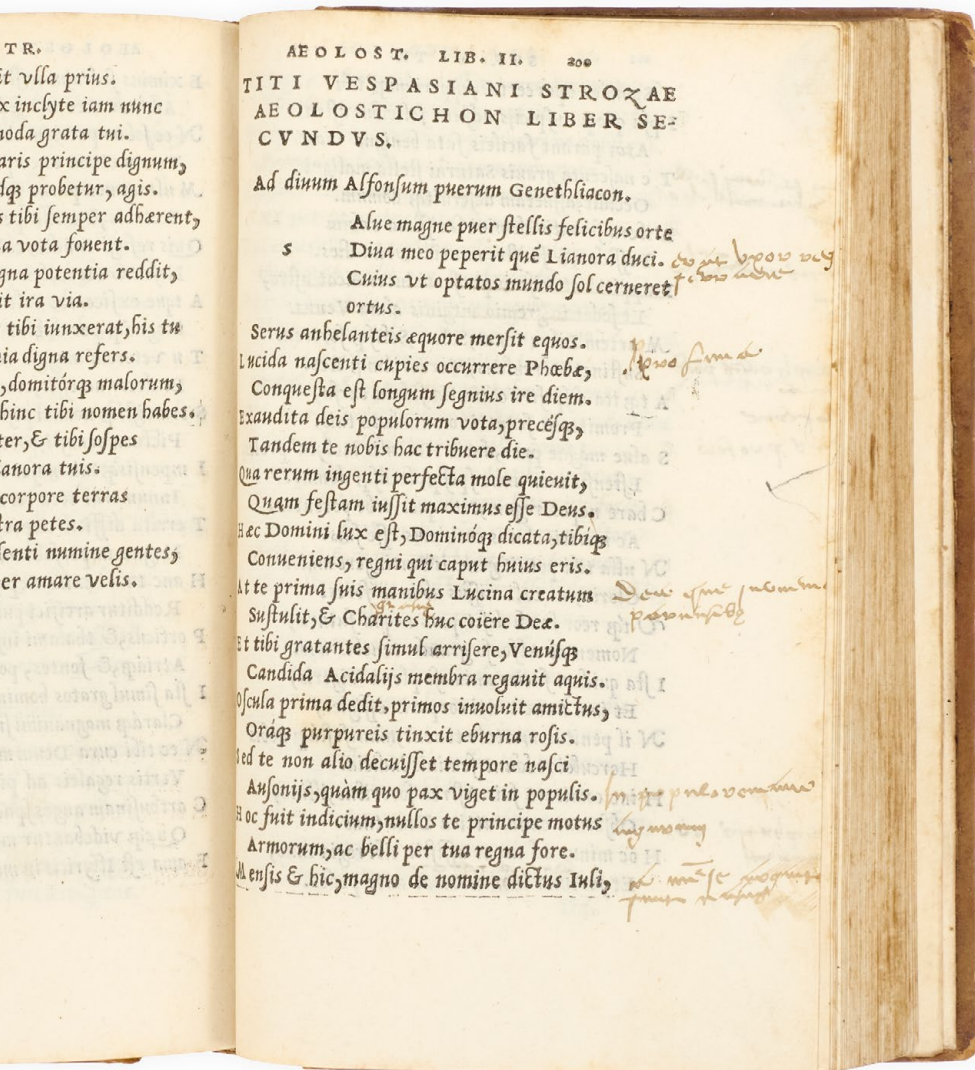 TR.
it vlla prius.
x inclyte iam nunc
noda grata tui.
aris principe dignum,
dq; probetur, agis.
s tibi ſemper adhærent,
a vota fouent.
gna potentia reddit,
it ira via.
tibi iunxerat, his tu
nia digna refers.
, domitórq; malorum,
hinc tibi nomen habes.
ter, & tibi ſoſpes
anora tuis.
corpore terras
tra petes.
ſenti numine gentes,
er amare velis.
AEOLOST. LIB. II. 200
TITI VESPASIANI STROZAE
AEOLOSTICHON LIBER SE-
CVNDVS.
Ad diuum Alfonſum puerum Genethliacon.
Alue magne puer ſtellis felicibus orte
s Diua meo peperit quẽ Lianora duci.
Cuius vt optatos mundo ſol cerneret
ortus.
Serus anhelanteis æquore merſit equos.
Lucida naſcenti cupies occurrere Phœbæ,
Conqueſta eſt longum ſegnius ire diem.
Exaudita deis populorum vota, precéſq;,
Tandem te nobis hac tribuere die.
Qua rerum ingenti perfecta mole quieuit,
Quam feſtam iuſſit maximus eſſe Deus.
Hæc Domini lux eſt, Dominóq; dicata, tibiq;
Conueniens, regni qui caput huius eris.
At te prima ſuis manibus Lucina creatum
Suſtulit, & Charites huc coiere Deæ.
Et tibi gratantes ſimul arriſere, Venúſq;
Candida Acidalijs membra regauit aquis.
Oſcula prima dedit, primos inuoluit amictus,
Oráq; purpureis tinxit eburna roſis.
Sed te non alio decuiſſet tempore naſci
Auſonijs, quàm quo pax viget in populis.
Hoc fuit indicium, nullos te principe motus
Armorum, ac belli per tua regna fore.
Menſis & hic, magno de nomine dictus Iuli,